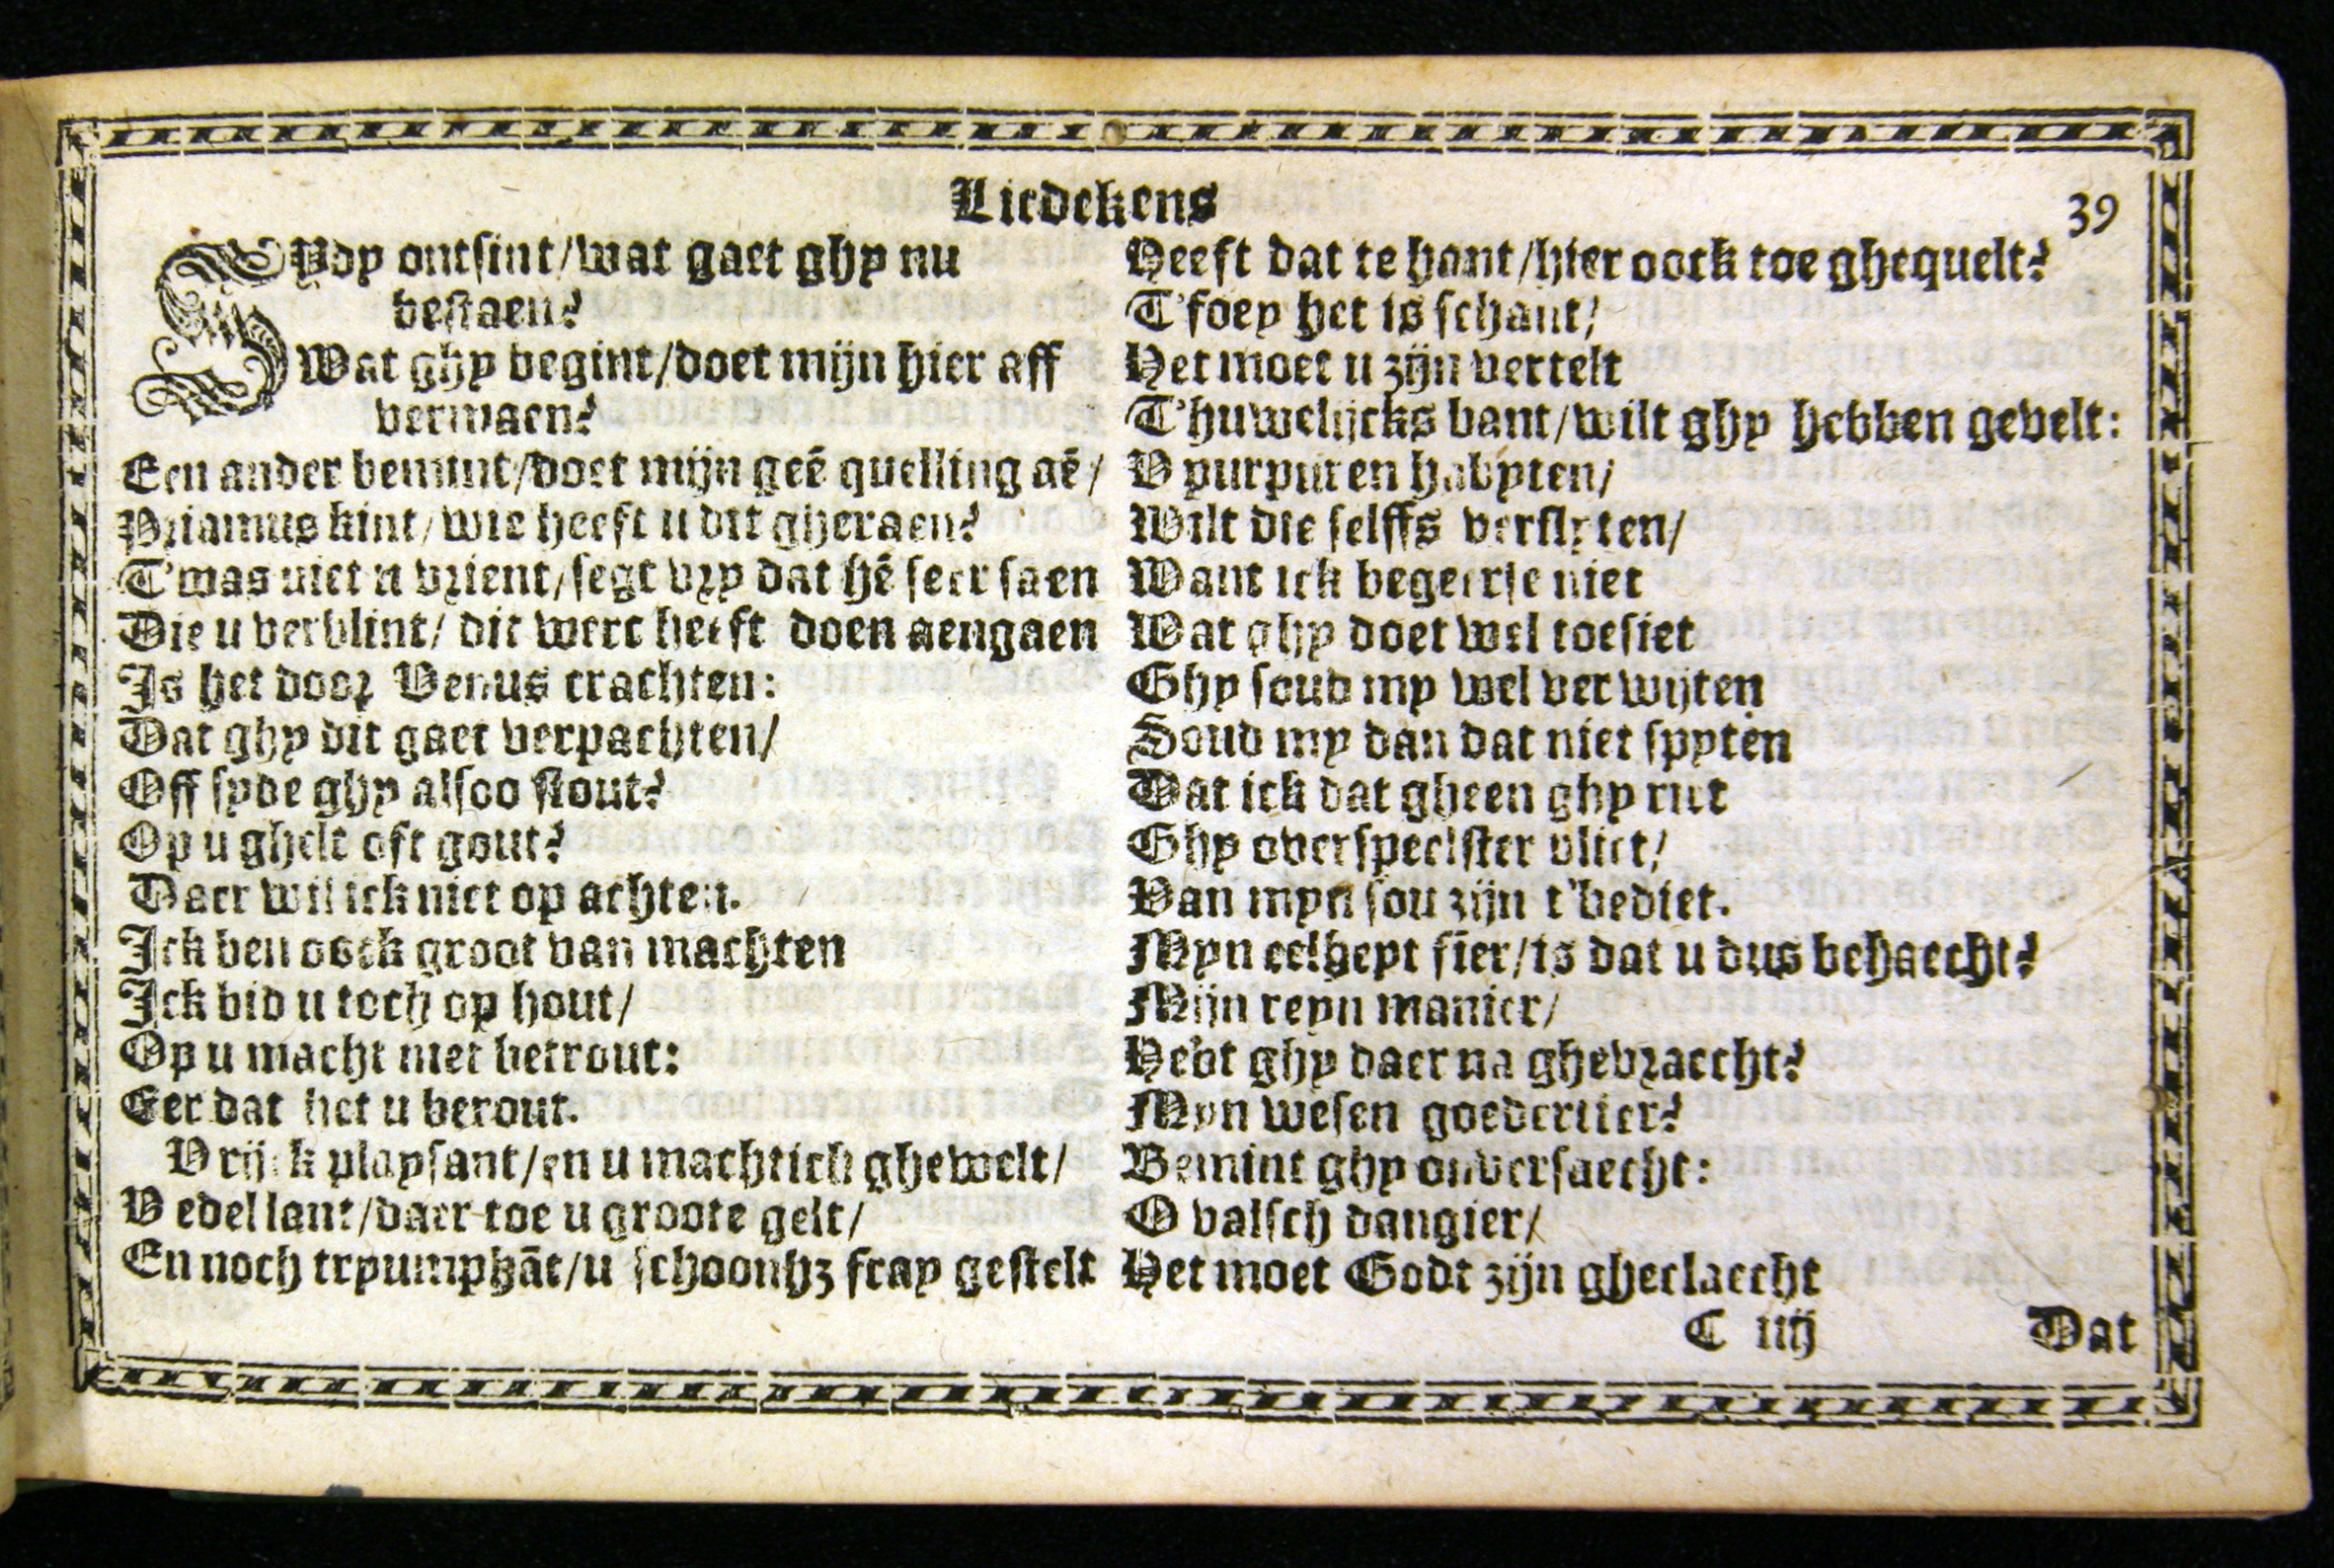 Liedekens
39
SYdy ontsint/wat gaet ghy nu
bestaen?
Wat ghy begint/doet mijn hier aff
vermaen?
Een ander bemint/doet mijn geē quelling aē/
Priamus kint/wie heeft u dit gheraen?
T'was niet u vrient/segt vry dat hē seer saen
Die u verblint/ dit werc heeft doen aengaen
Is het door Venus crachten:
Dat ghy dit gaet verpachten/
Off syde ghy alsoo stout?
Op u ghelt oft gout?
Daer wil ick niet op achten.
Ick ben oock groot van machten
Ick bid u toch op hout/
Op u macht niet betrout:
Eer dat het u berout.
V rijck playsant/en u machtich ghewelt/
V edel lant/daer toe u groote gelt/
En noch tryumphāt/u schoonhz fray gestelt
Heeft dat te hant/hier oock toe ghequelt?
T'foey het is schant/
Het moet u zijn vertelt
T'huwelijcks bant/wilt ghy hebben gevelt:
V purpuren habyten/
Wilt die selffs verslyten/
Want ick begeerse niet
Wat ghy doet wel toesiet
Ghy soud my wel verwijten
Soud my dan dat niet spyten
Dat ick dat gheen ghy riet
Ghy overspeelster vliet/
Van myn sou zijn t'bediet.
Myn eelheyt fier/is dat u dus behaecht?
Mijn reyn manier/
Hebt ghy daer na ghevraecht?
Myn wesen goedertier?
Bemint ghy onversaecht:
O valsch dangier/
Het moet Godt zijn gheclaecht
C iiij
Dat